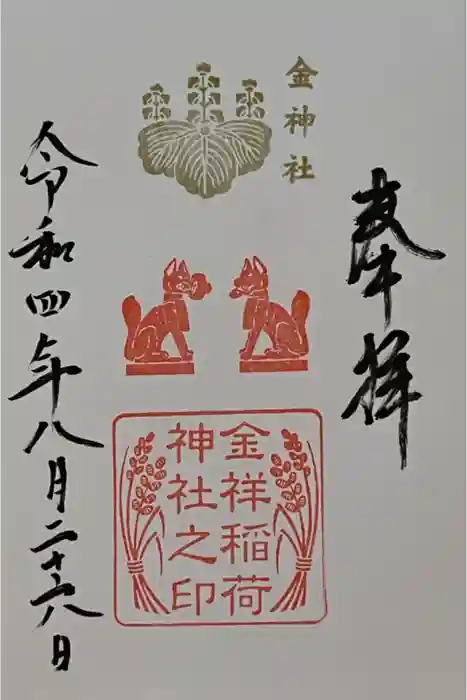 奉拝
金神社
金祥稲荷
神社之印
令和四年八月二十六日